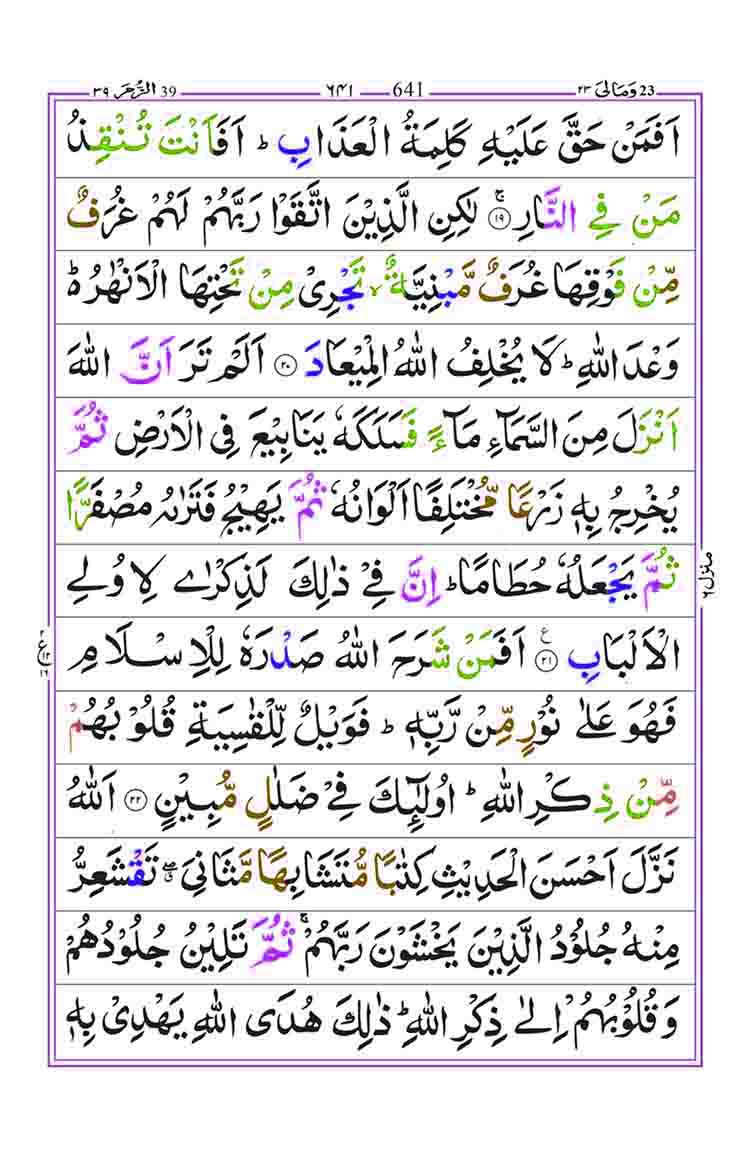 39 الزُّمَر ٣٩ ٦٤١ 641 23 وَمَالِيَ ٢٣
اَفَمَنْ حَقَّ عَلَيْهِ كَلِمَةُ الْعَذَابِ ؕ اَفَاَنْتَ تُنْقِذُ
مَنْ فِي النَّارِ ۚ ﴿۱۹﴾ لٰكِنِ الَّذِيْنَ اتَّقَوْا رَبَّهُمْ لَهُمْ غُرَفٌ
مِّنْ فَوْقِهَا غُرَفٌ مَّبْنِيَّةٌ ۙ تَجْرِيْ مِنْ تَحْتِهَا الْاَنْهٰرُ ؕ
وَعْدَ اللّٰهِ ؕ لَا يُخْلِفُ اللّٰهُ الْمِيْعَادَ ﴿۲۰﴾ اَلَمْ تَرَ اَنَّ اللّٰهَ
اَنْزَلَ مِنَ السَّمَآءِ مَآءً فَسَلَكَهٗ يَنَابِيْعَ فِي الْاَرْضِ ثُمَّ
يُخْرِجُ بِهٖ زَرْعًا مُّخْتَلِفًا اَلْوَانُهٗ ثُمَّ يَهِيْجُ فَتَرٰىهُ مُصْفَرًّا
ثُمَّ يَجْعَلُهٗ حُطَامًا ؕ اِنَّ فِيْ ذٰلِكَ لَذِكْرٰى لِاُولِي
الْاَلْبَابِ ﴿۲۱﴾ ع اَفَمَنْ شَرَحَ اللّٰهُ صَدْرَهٗ لِلْاِسْلَامِ
فَهُوَ عَلٰى نُوْرٍ مِّنْ رَّبِّهٖ ؕ فَوَيْلٌ لِّلْقٰسِيَةِ قُلُوْبُهُمْ
مِّنْ ذِكْرِ اللّٰهِ ؕ اُولٰٓئِكَ فِيْ ضَلٰلٍ مُّبِيْنٍ ﴿۲۲﴾ اَللّٰهُ
نَزَّلَ اَحْسَنَ الْحَدِيْثِ كِتٰبًا مُّتَشَابِهًا مَّثَانِيَ ۖ تَقْشَعِرُّ
مِنْهُ جُلُوْدُ الَّذِيْنَ يَخْشَوْنَ رَبَّهُمْ ۚ ثُمَّ تَلِيْنُ جُلُوْدُهُمْ
وَقُلُوْبُهُمْ اِلٰى ذِكْرِ اللّٰهِ ؕ ذٰلِكَ هُدَى اللّٰهِ يَهْدِيْ بِهٖ
منزل ٦